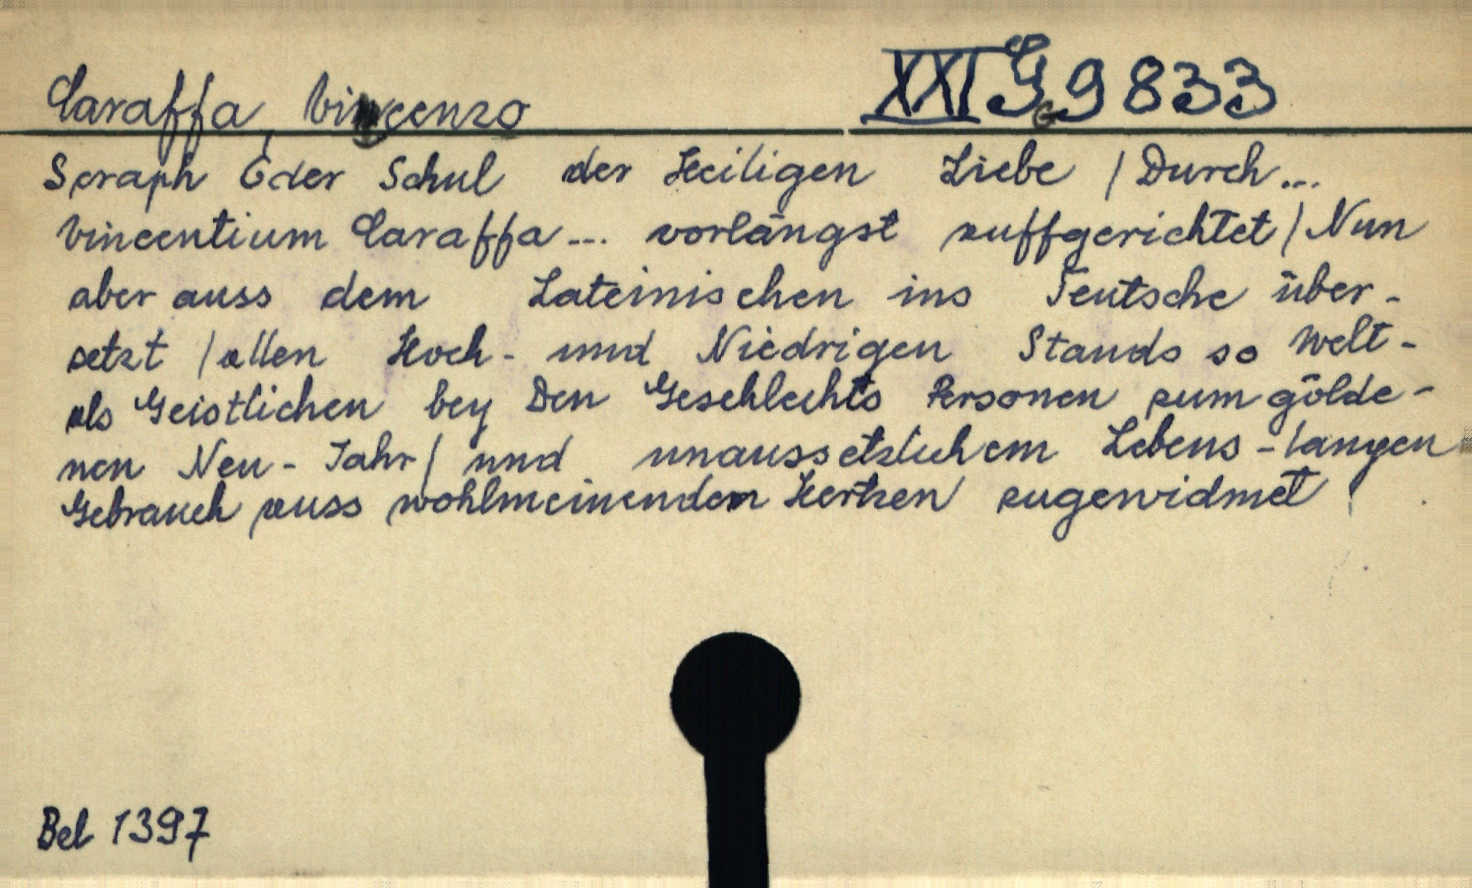 Caraffa, Vincenzo
XXI G 9833
Seraph Oder Schul der Heiligen Liebe / Durch...
Vincentium Caraffa... vorlängst auffgerichtet / Nun
aber auss dem Lateinischen ins Teutsche über-
setzt / allen Hoch- und Niedrigen Stands so Welt-
als Geistlichen bey Den Geschlechts Personen zum gölde-
nen Neu-Jahr / und unaussetzlichem Lebens-langen
Gebrauch auss wohlmeinenden Hertzen zugewidmet
Bel 1397